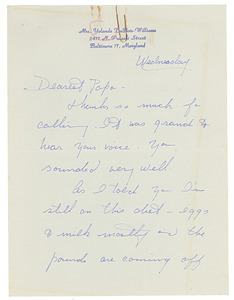 Mrs. Yolande DuBois Williams
Baltimore 17, Maryland
Wednesday
Dearest Papa -
Thanks so much for
calling. It was grand to
hear your voice. You
sounded very well.
As I told you I'm
still on this diet - eggs
& milk mostly and the
pounds are coming off